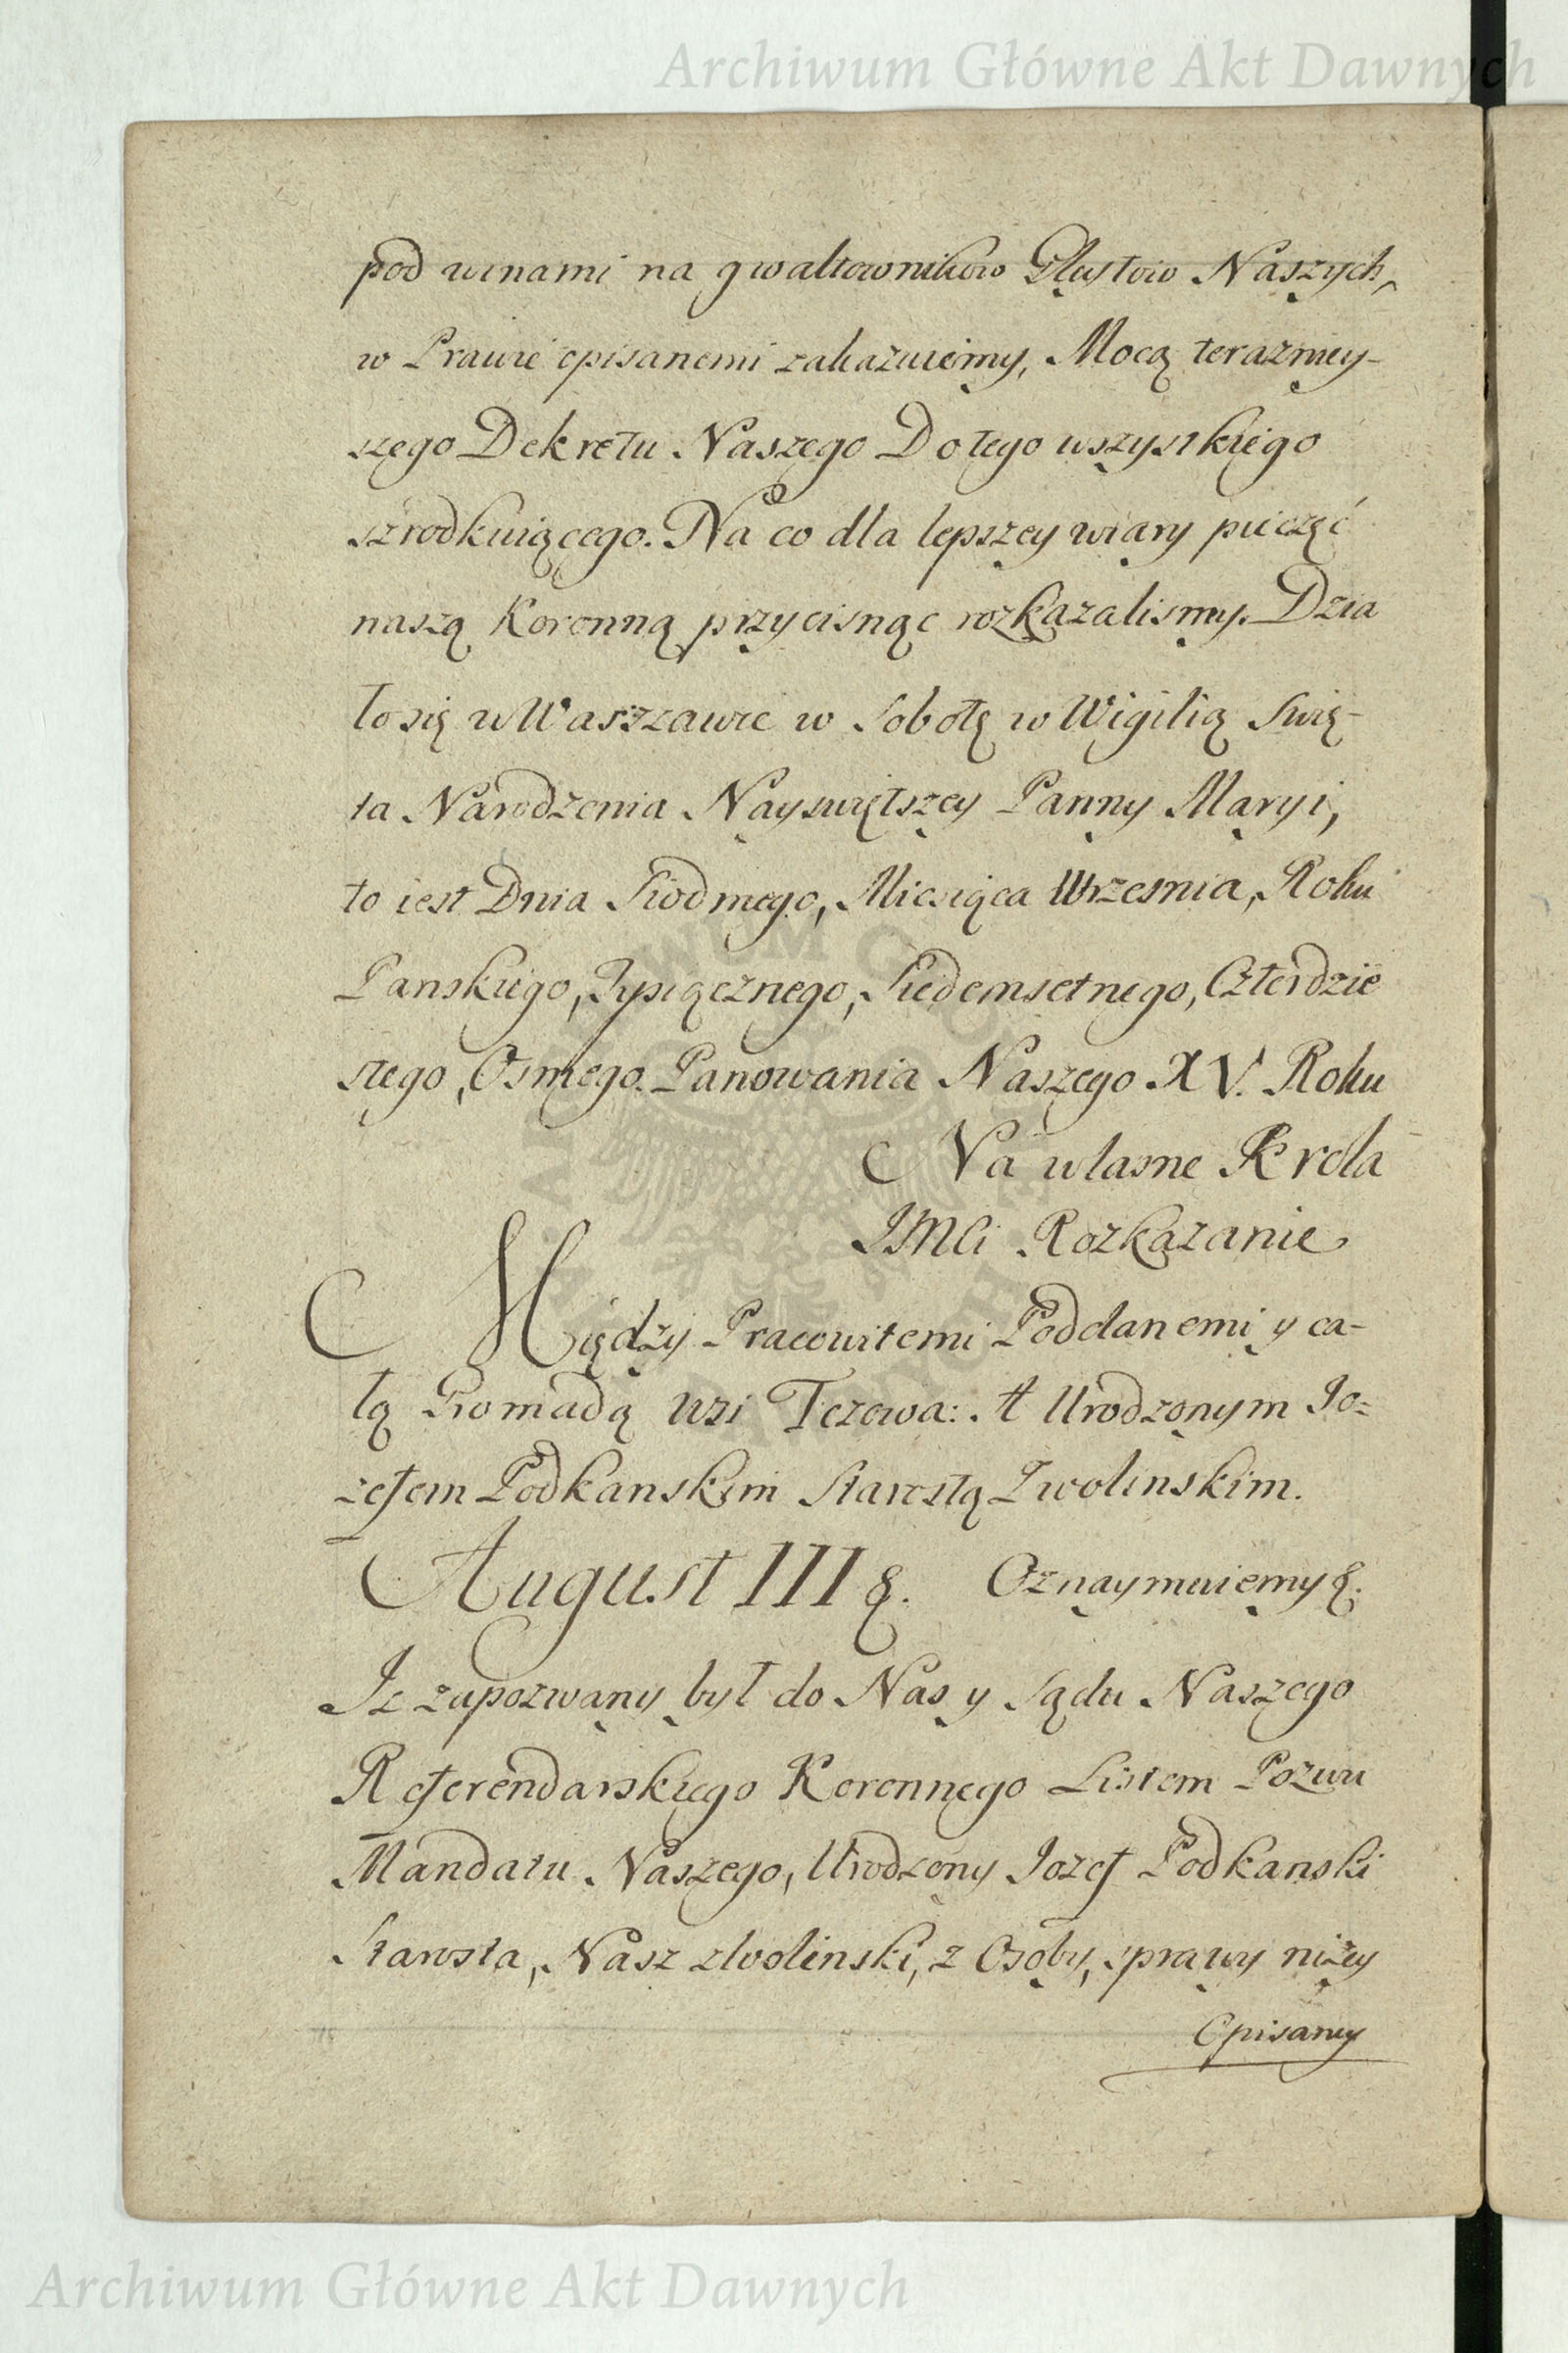 Archiwum Główne Akt Dawnych
pod winami na gwałtownikow Glystow Naszych,
w Prawie opisanemi zakazuiemy, Mocą terazniey-
szego Dekretu Naszego Do tego wszystkiego
szrodkuiącego. Na co dla lepszey wiary pieczęć
naszą Koronną przycisnąc rozkazalismy. Dzia
ło się w Warszawie w Sobotę w Wigilią Swię-
ta Narodzenia Nayswiętszey Panny Maryi,
to iest Dnia Siodmego, Miesiąca Wrzesnia, Roku
Panskiego, Tysiącznego, Siedemsetnego, Czterdzie
stego, Osmego. Panowania Naszego XV. Roku
Na własne Krola
JMCi Rozkazanie
Między Pracowitemi Poddanemi y ca-
łą Gromadą Wsi Tczowa: A Urodzonym Jo-
zefem Podkanskim Starostą Zwolinskim.
August III &. Oznaymuiemy &.
Iz zapozwany był do Nas y Sądu Naszego
Referendarskiego Koronnego Listem Pozwu
Mandatu Naszego, Urodzony Jozef Podkanski
Starosta, Nasz zwolinski, z Osoby, sprawy niżey
Opisaney
Archiwum Główne Akt Dawnych